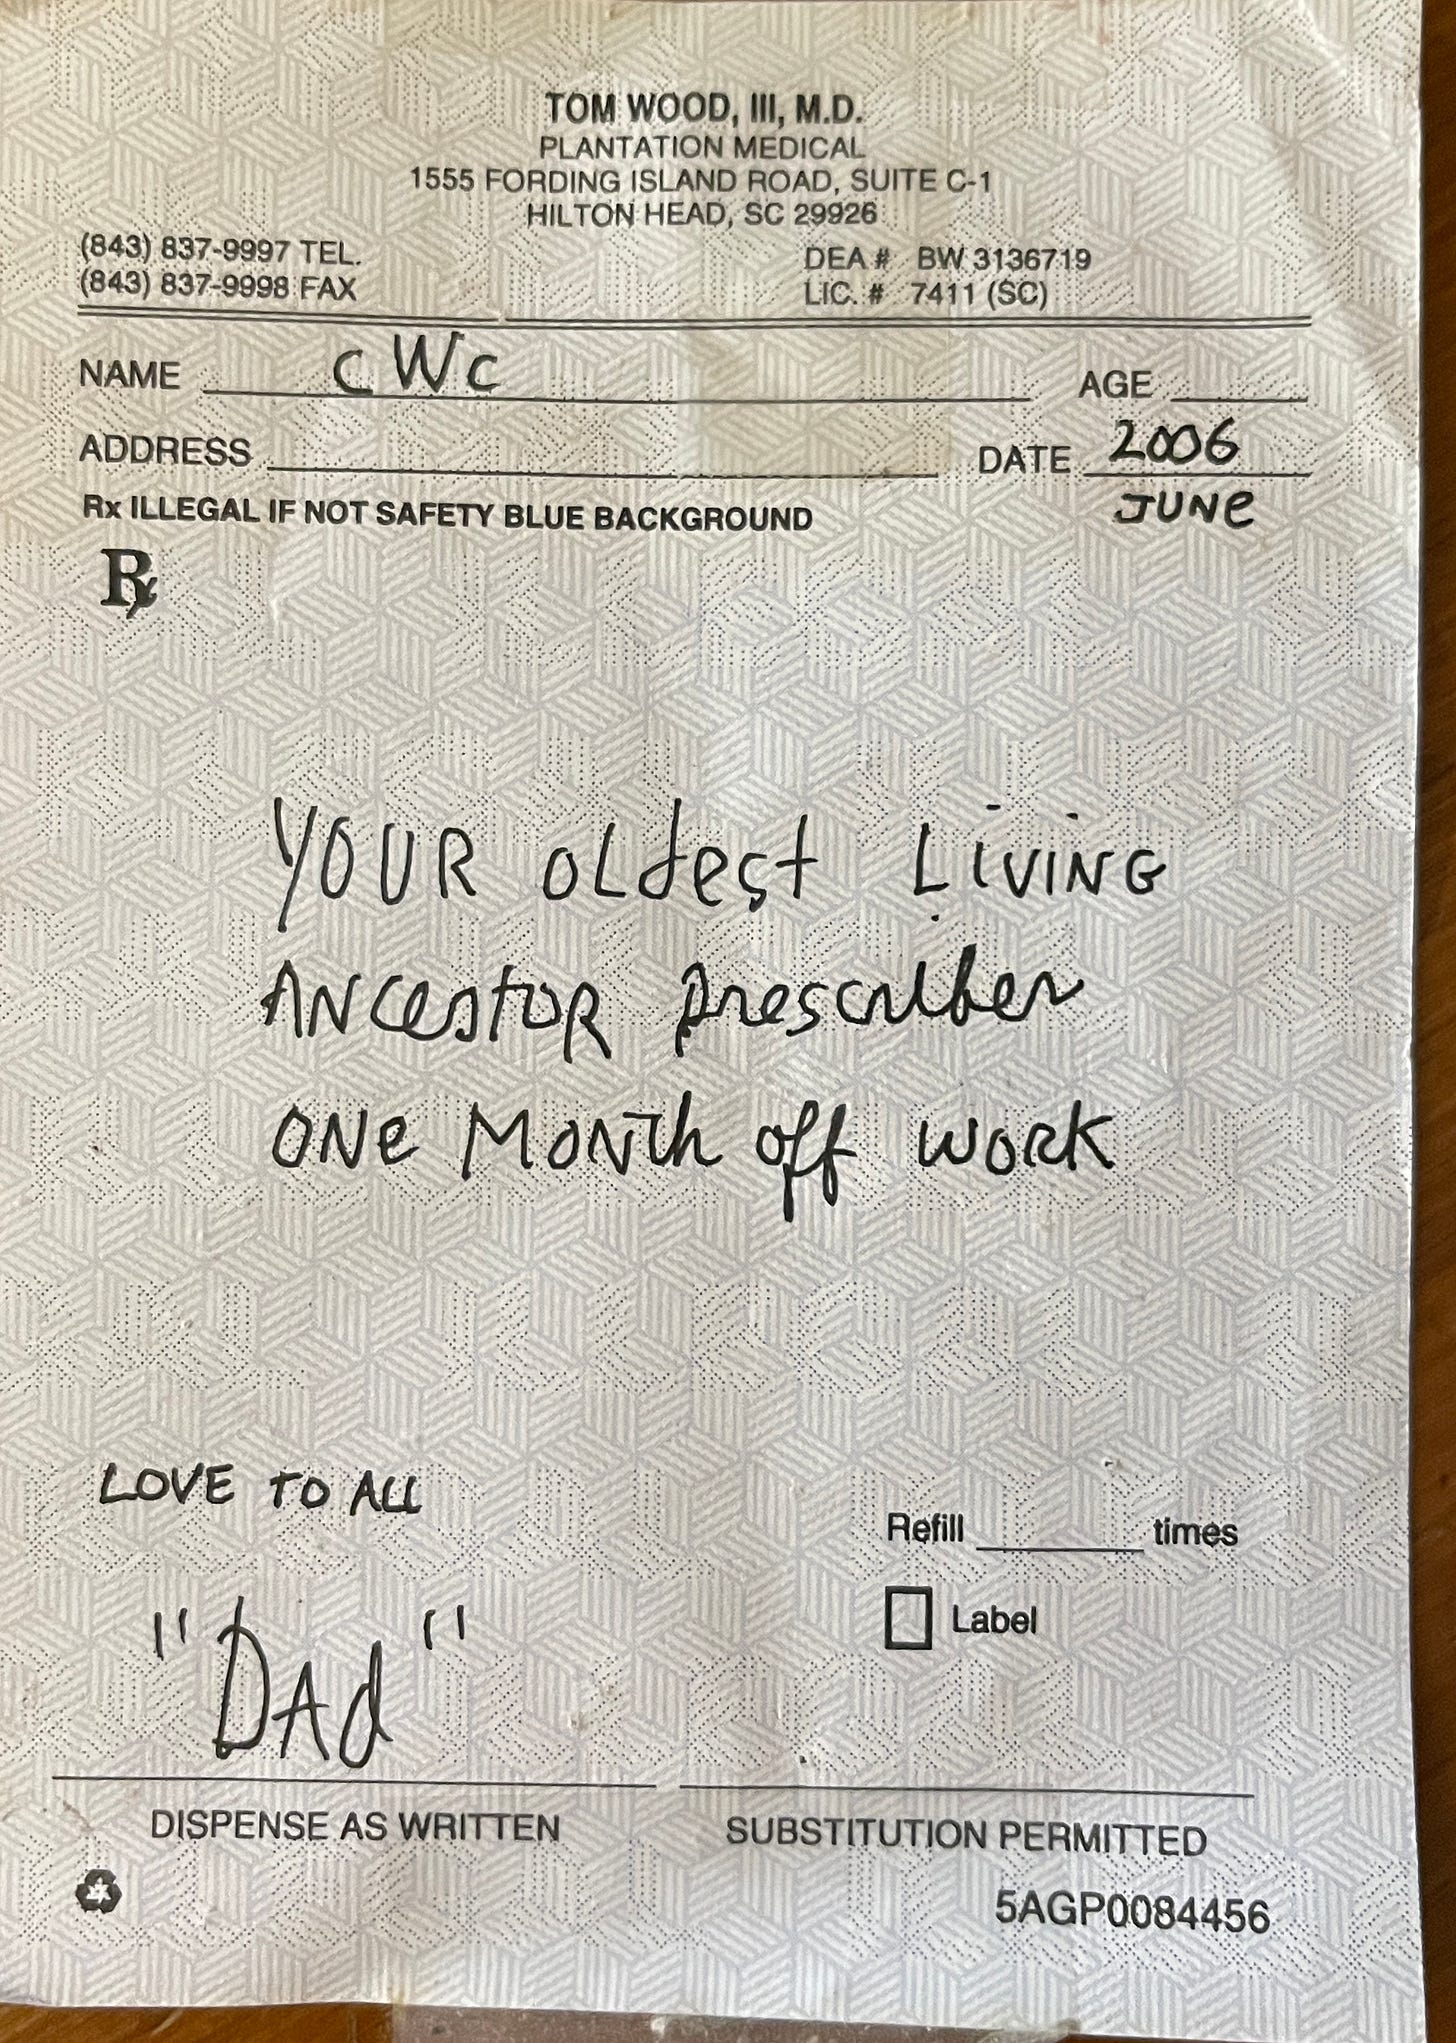 TOM WOOD, III, M.D.
PLANTATION MEDICAL
1555 FORDING ISLAND ROAD, SUITE C-1
HILTON HEAD, SC 29926
(843) 837-9997 TEL.
(843) 837-9998 FAX
DEA # BW 3136719
LIC. # 7411 (SC)
NAME CWC AGE
ADDRESS DATE 2006
JUNE
Rx ILLEGAL IF NOT SAFETY BLUE BACKGROUND
Rx
YOUR oLdest LiviNG
ANcestoR prescriber
ONe MoNth off work
LOVE TO ALL
Refill times
Label
"DAd"
DISPENSE AS WRITTEN SUBSTITUTION PERMITTED
5AGP0084456